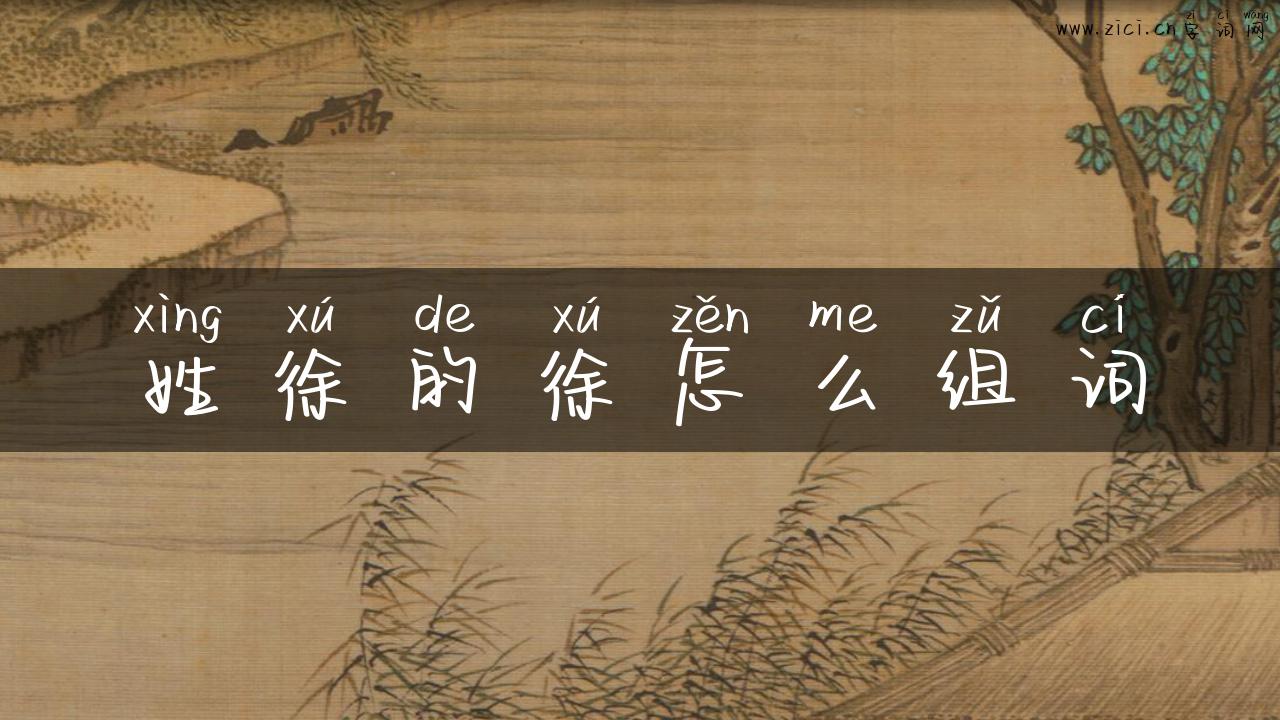 zì cí wǎng
www.zici.cn字词网
xìng xú de xú zěn me zǔ cí
姓徐的徐怎么组词